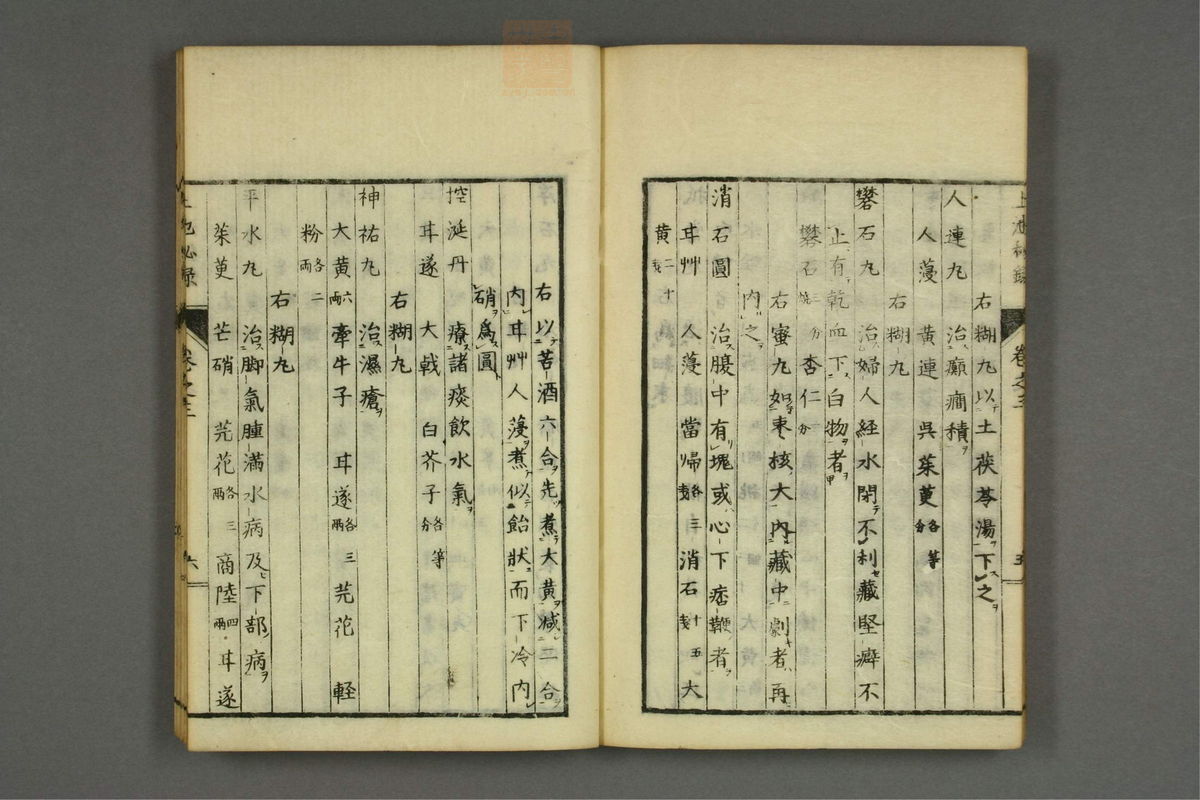 右糊丸以土茯苓湯下之
人連丸 治癲癎積
人蓡 黄連 呉茱萸各等分
右糊丸
礬石丸 治婦人経水閉不利藏堅癖不
止有乾血下白物者
礬石三分燒 杏仁分
右蜜丸如棗核大內藏中劇者再
內之
消石圓 治腹中有塊或心下痞鞭者
甘艸 人蓡 當帰各三戔 消石十五戔 大
黄二十戔
右以苦酒六合先煮大黄減二合
內甘艸人蓡煮似飴狀而下冷內
硝為圓
控涎丹 療諸痰飲水氣
甘遂 大戟 白芥子各等分
右糊丸
神祐丸 治濕瘡
大黄六兩 牽牛子 甘遂各三兩 芫花 軽
粉各二兩
右糊丸
平水丸 治脚氣腫滿水病及下部病
茱萸 芒硝 芫花各三兩 商陸四兩 甘遂
卷之三
五
卷之三
六